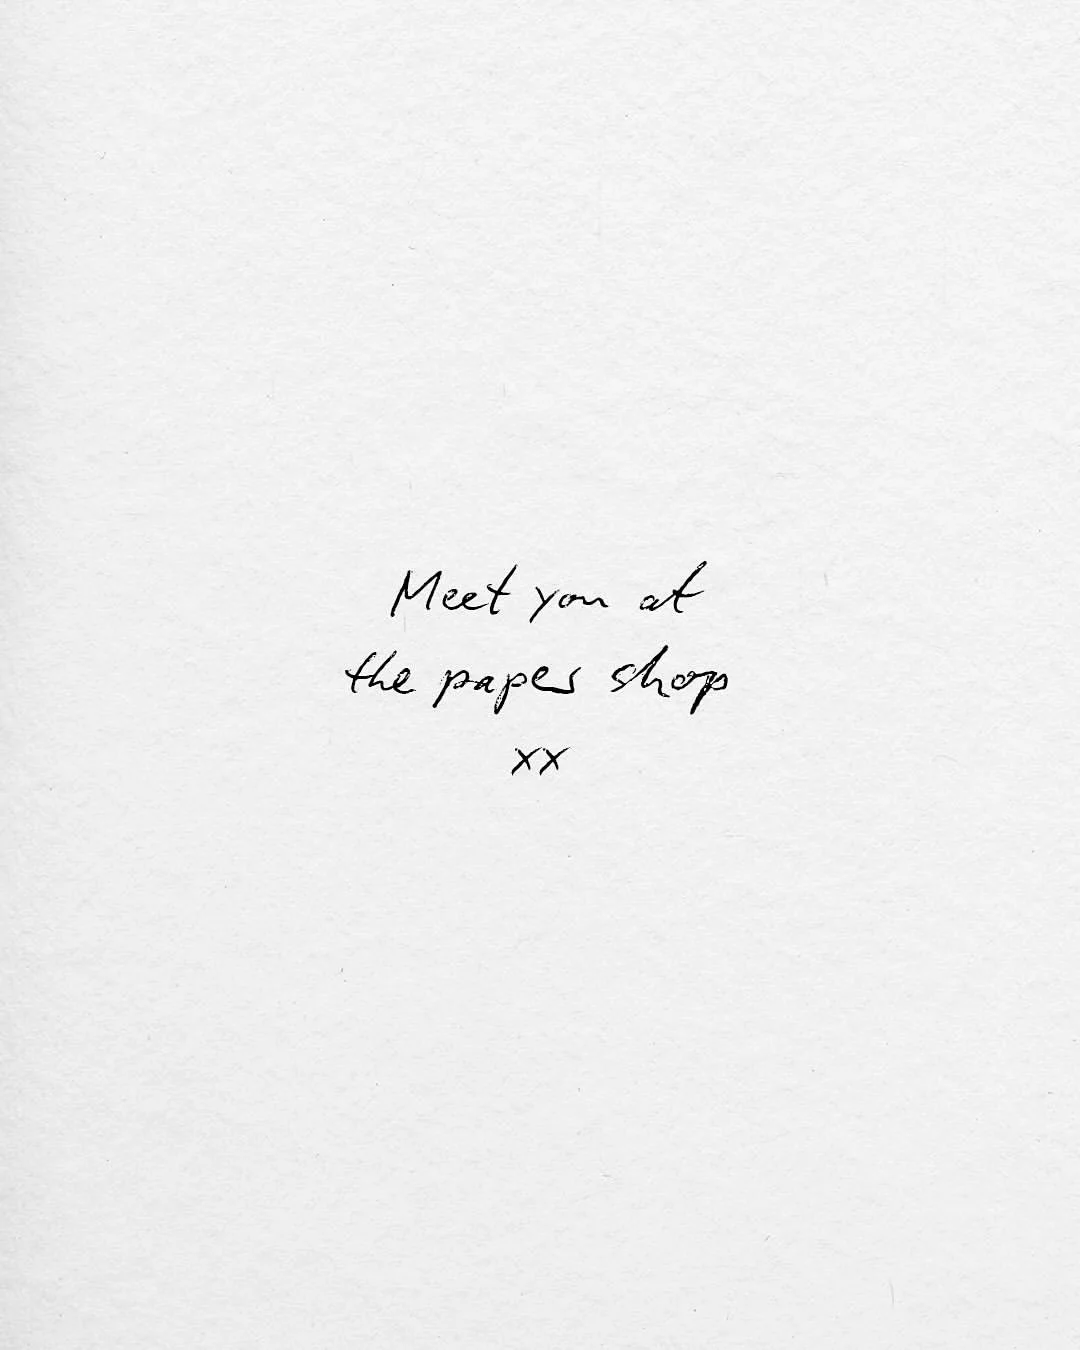 Meet you at
the paper shop
xx